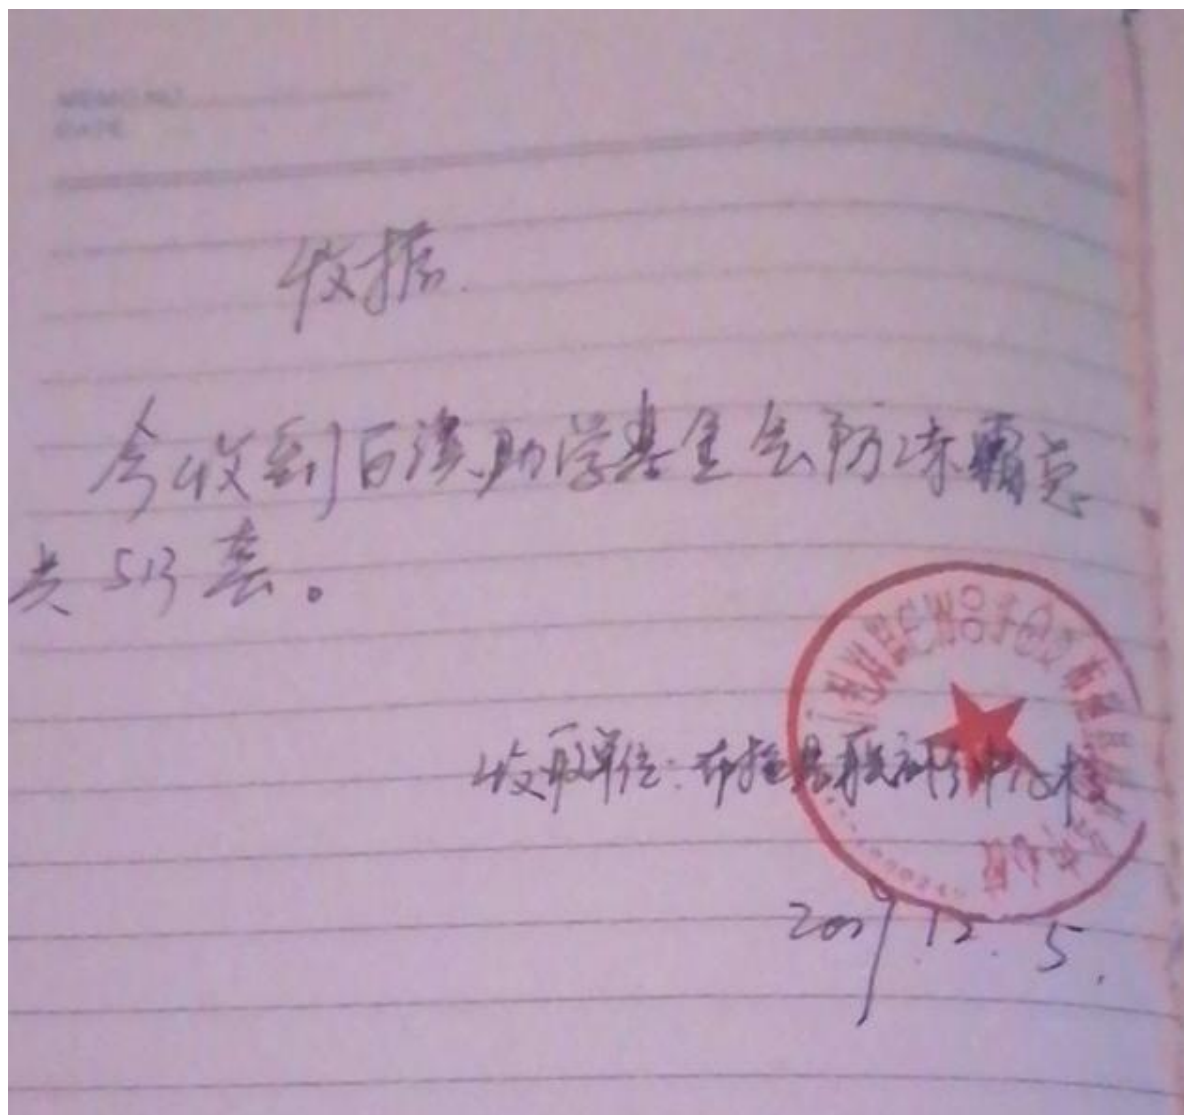 MEMO NO.
DATE
收据.
今收到百洪助学基金会防冻霜总
共 513 套。
收取单位: 布拖县民族初级中学校
2009.12.5.